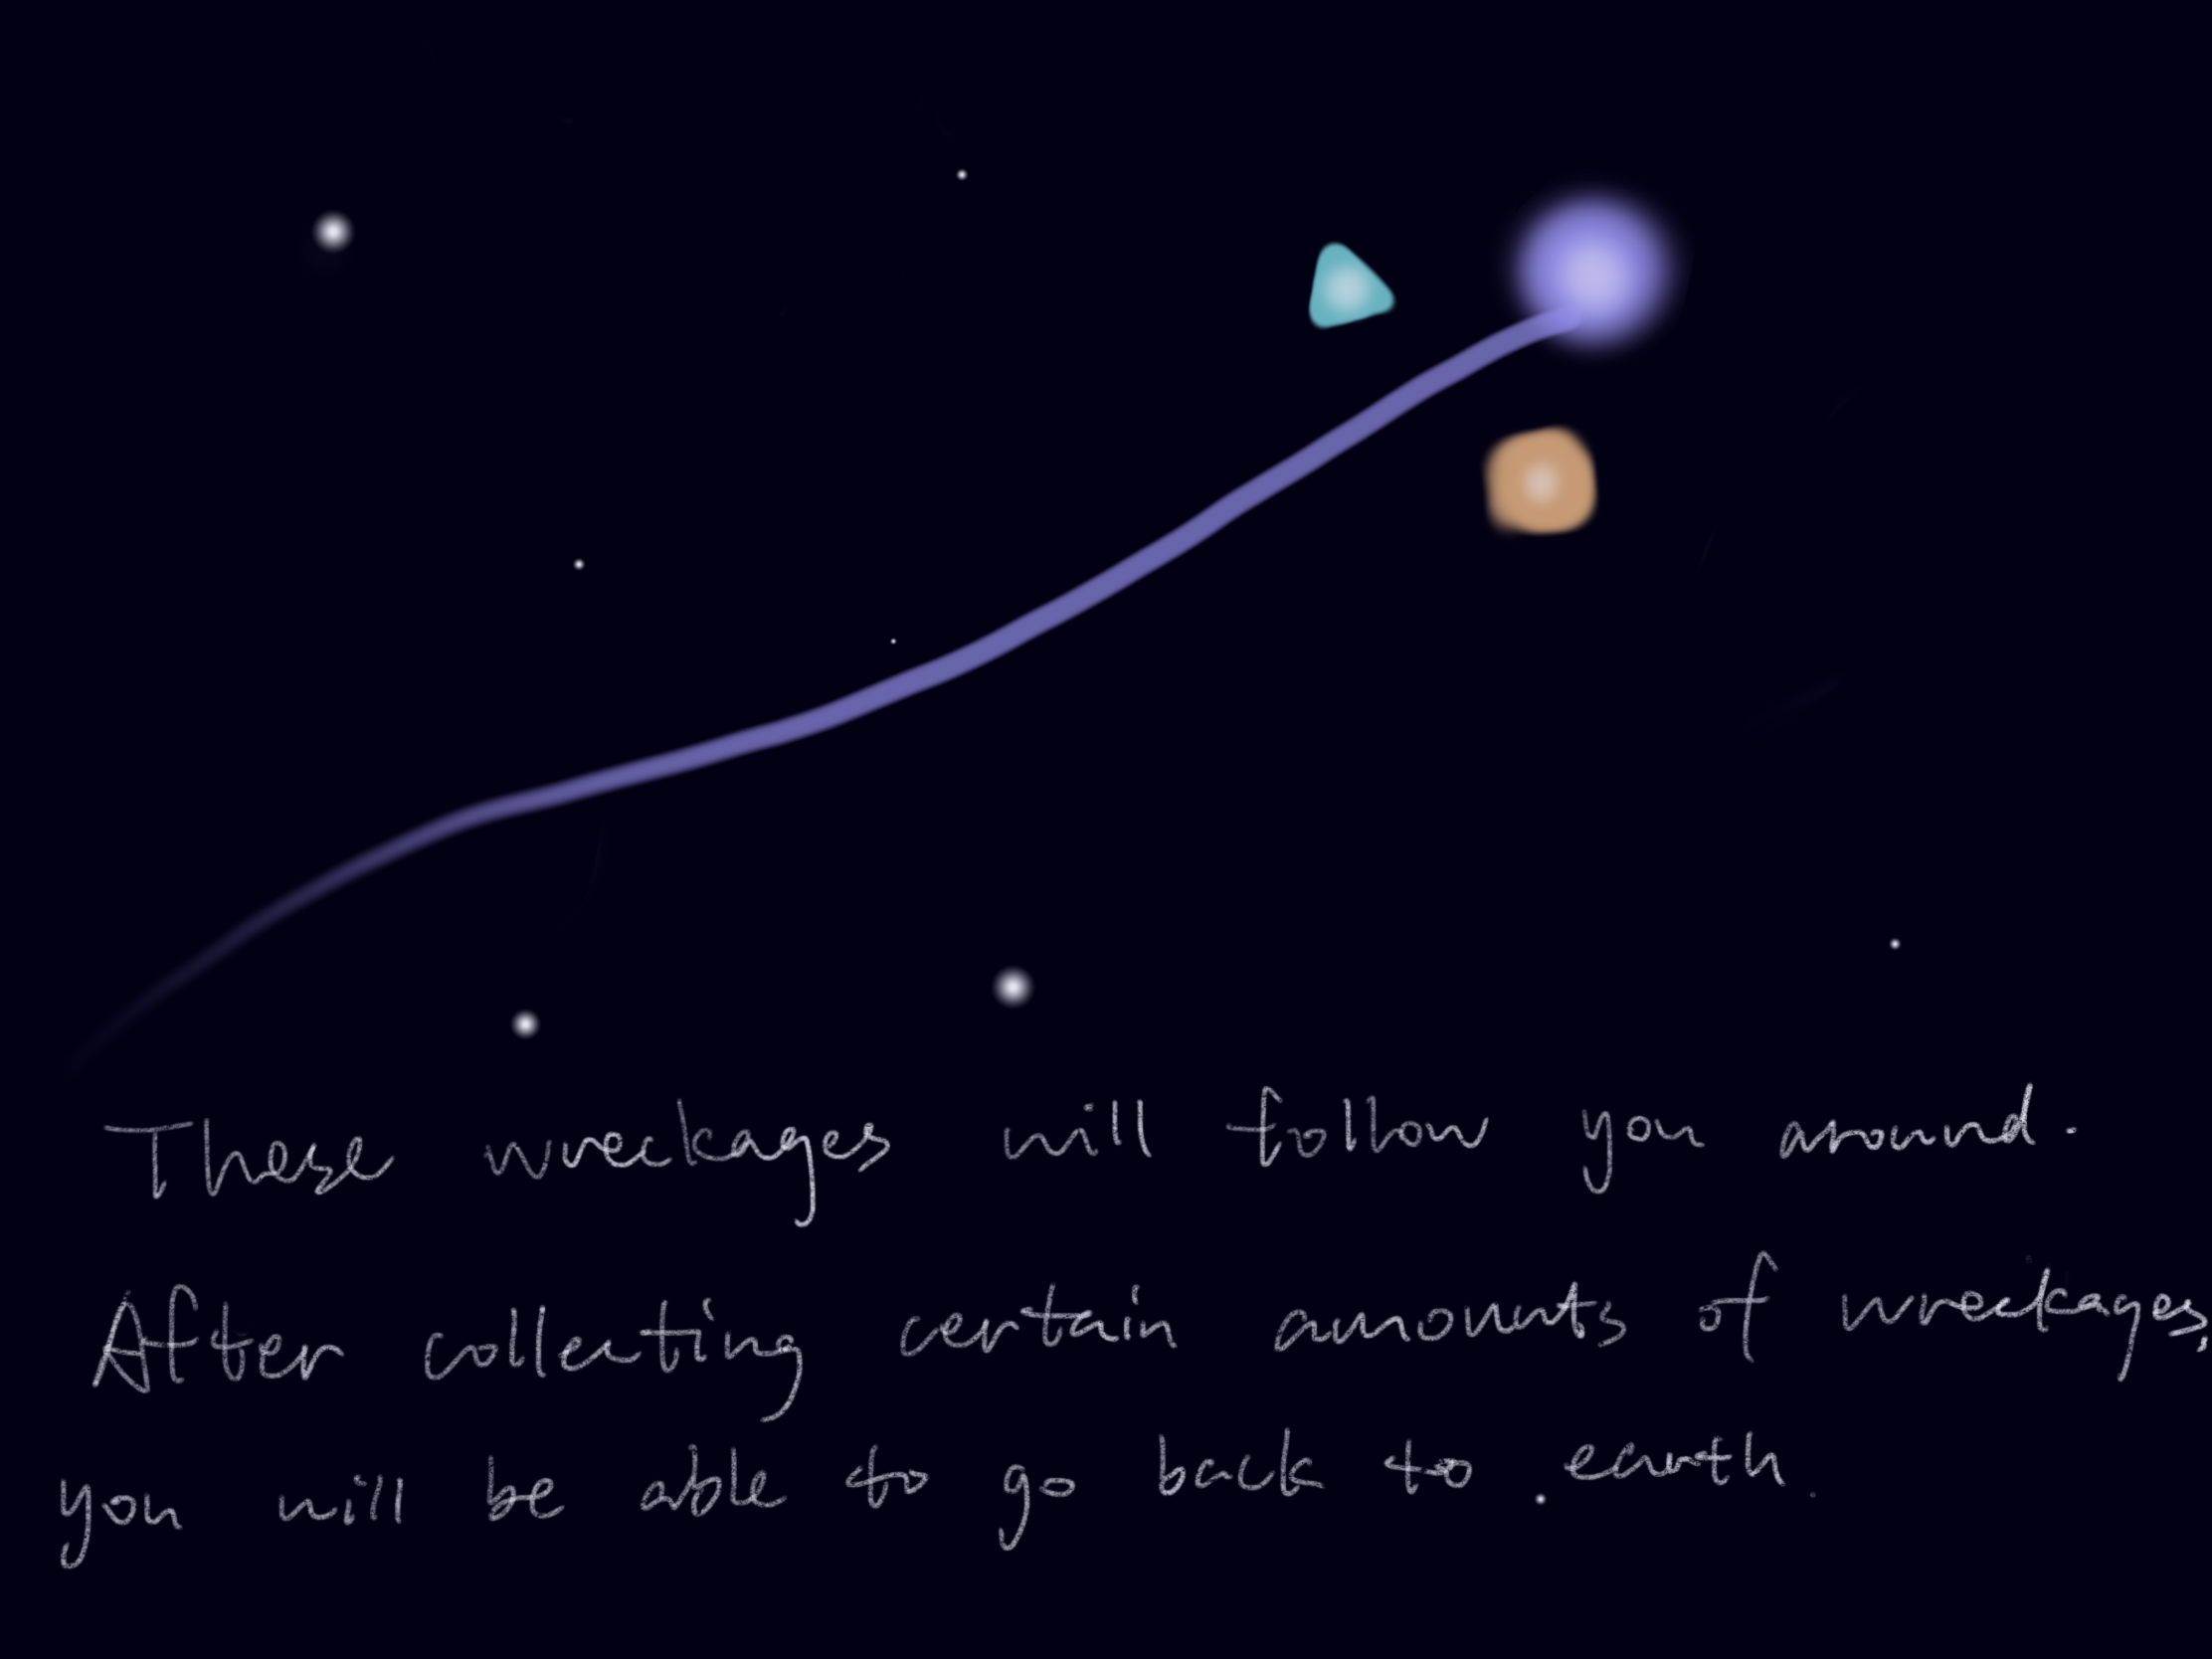 These wreckages will follow you around.
After collecting certain amounts of wreckages,
you will be able to go back to earth.